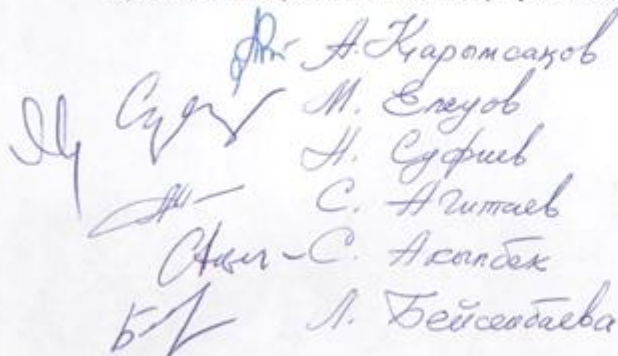 А. Қарымсақов
М. Елеуов
Н. Суфиев
С. Агитаев
С. Ақылбек
Л. Бейсенбаева